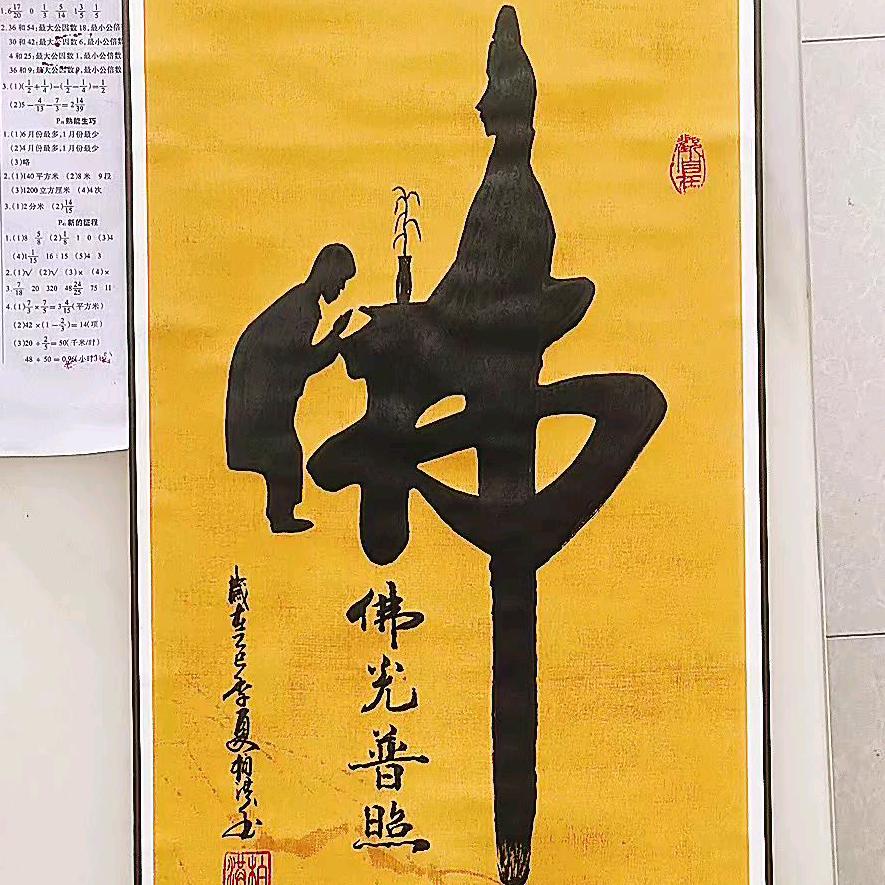 1.6 17/20 0 1/3 5/14 1 3/5 1/5
2.36和54:最大公因数18,最小公倍数
30和42:最大公因数6,最小公倍数
4和25:最大公因数1,最小公倍数
36和9:最大公因数9,最小公倍数
3.(1)(1/2+1/4)-(1/2-1/4)=1/2
(2)5-4/13-7/3=2 14/39
熟能生巧
1.(1)6月份最多,1月份最少
(2)4月份最多,1月份最少
(3)略
2.(1)140平方米 (2)8米 9段
(3)1200立方厘米 (4)4次
3.(1)2分米 (2)14/15
新的征程
1.(1)8 5/8 (2)1/8 1 0 (3)4
(4)1 1/15 16:15 (5)4 3
2.(1)√ (2)√ (3)× (4)×
3.7/18 20 320 48 24/25 75 11
4.(1)7/3×7/5=3 4/15(平方米)
(2)42×(1-2/3)=14(项)
(3)20÷2/5=50(千米/时)
48÷50=0.96(小时)
佛
觀自在
佛光普照
歲在乙巳季夏柏洪书
柏洪